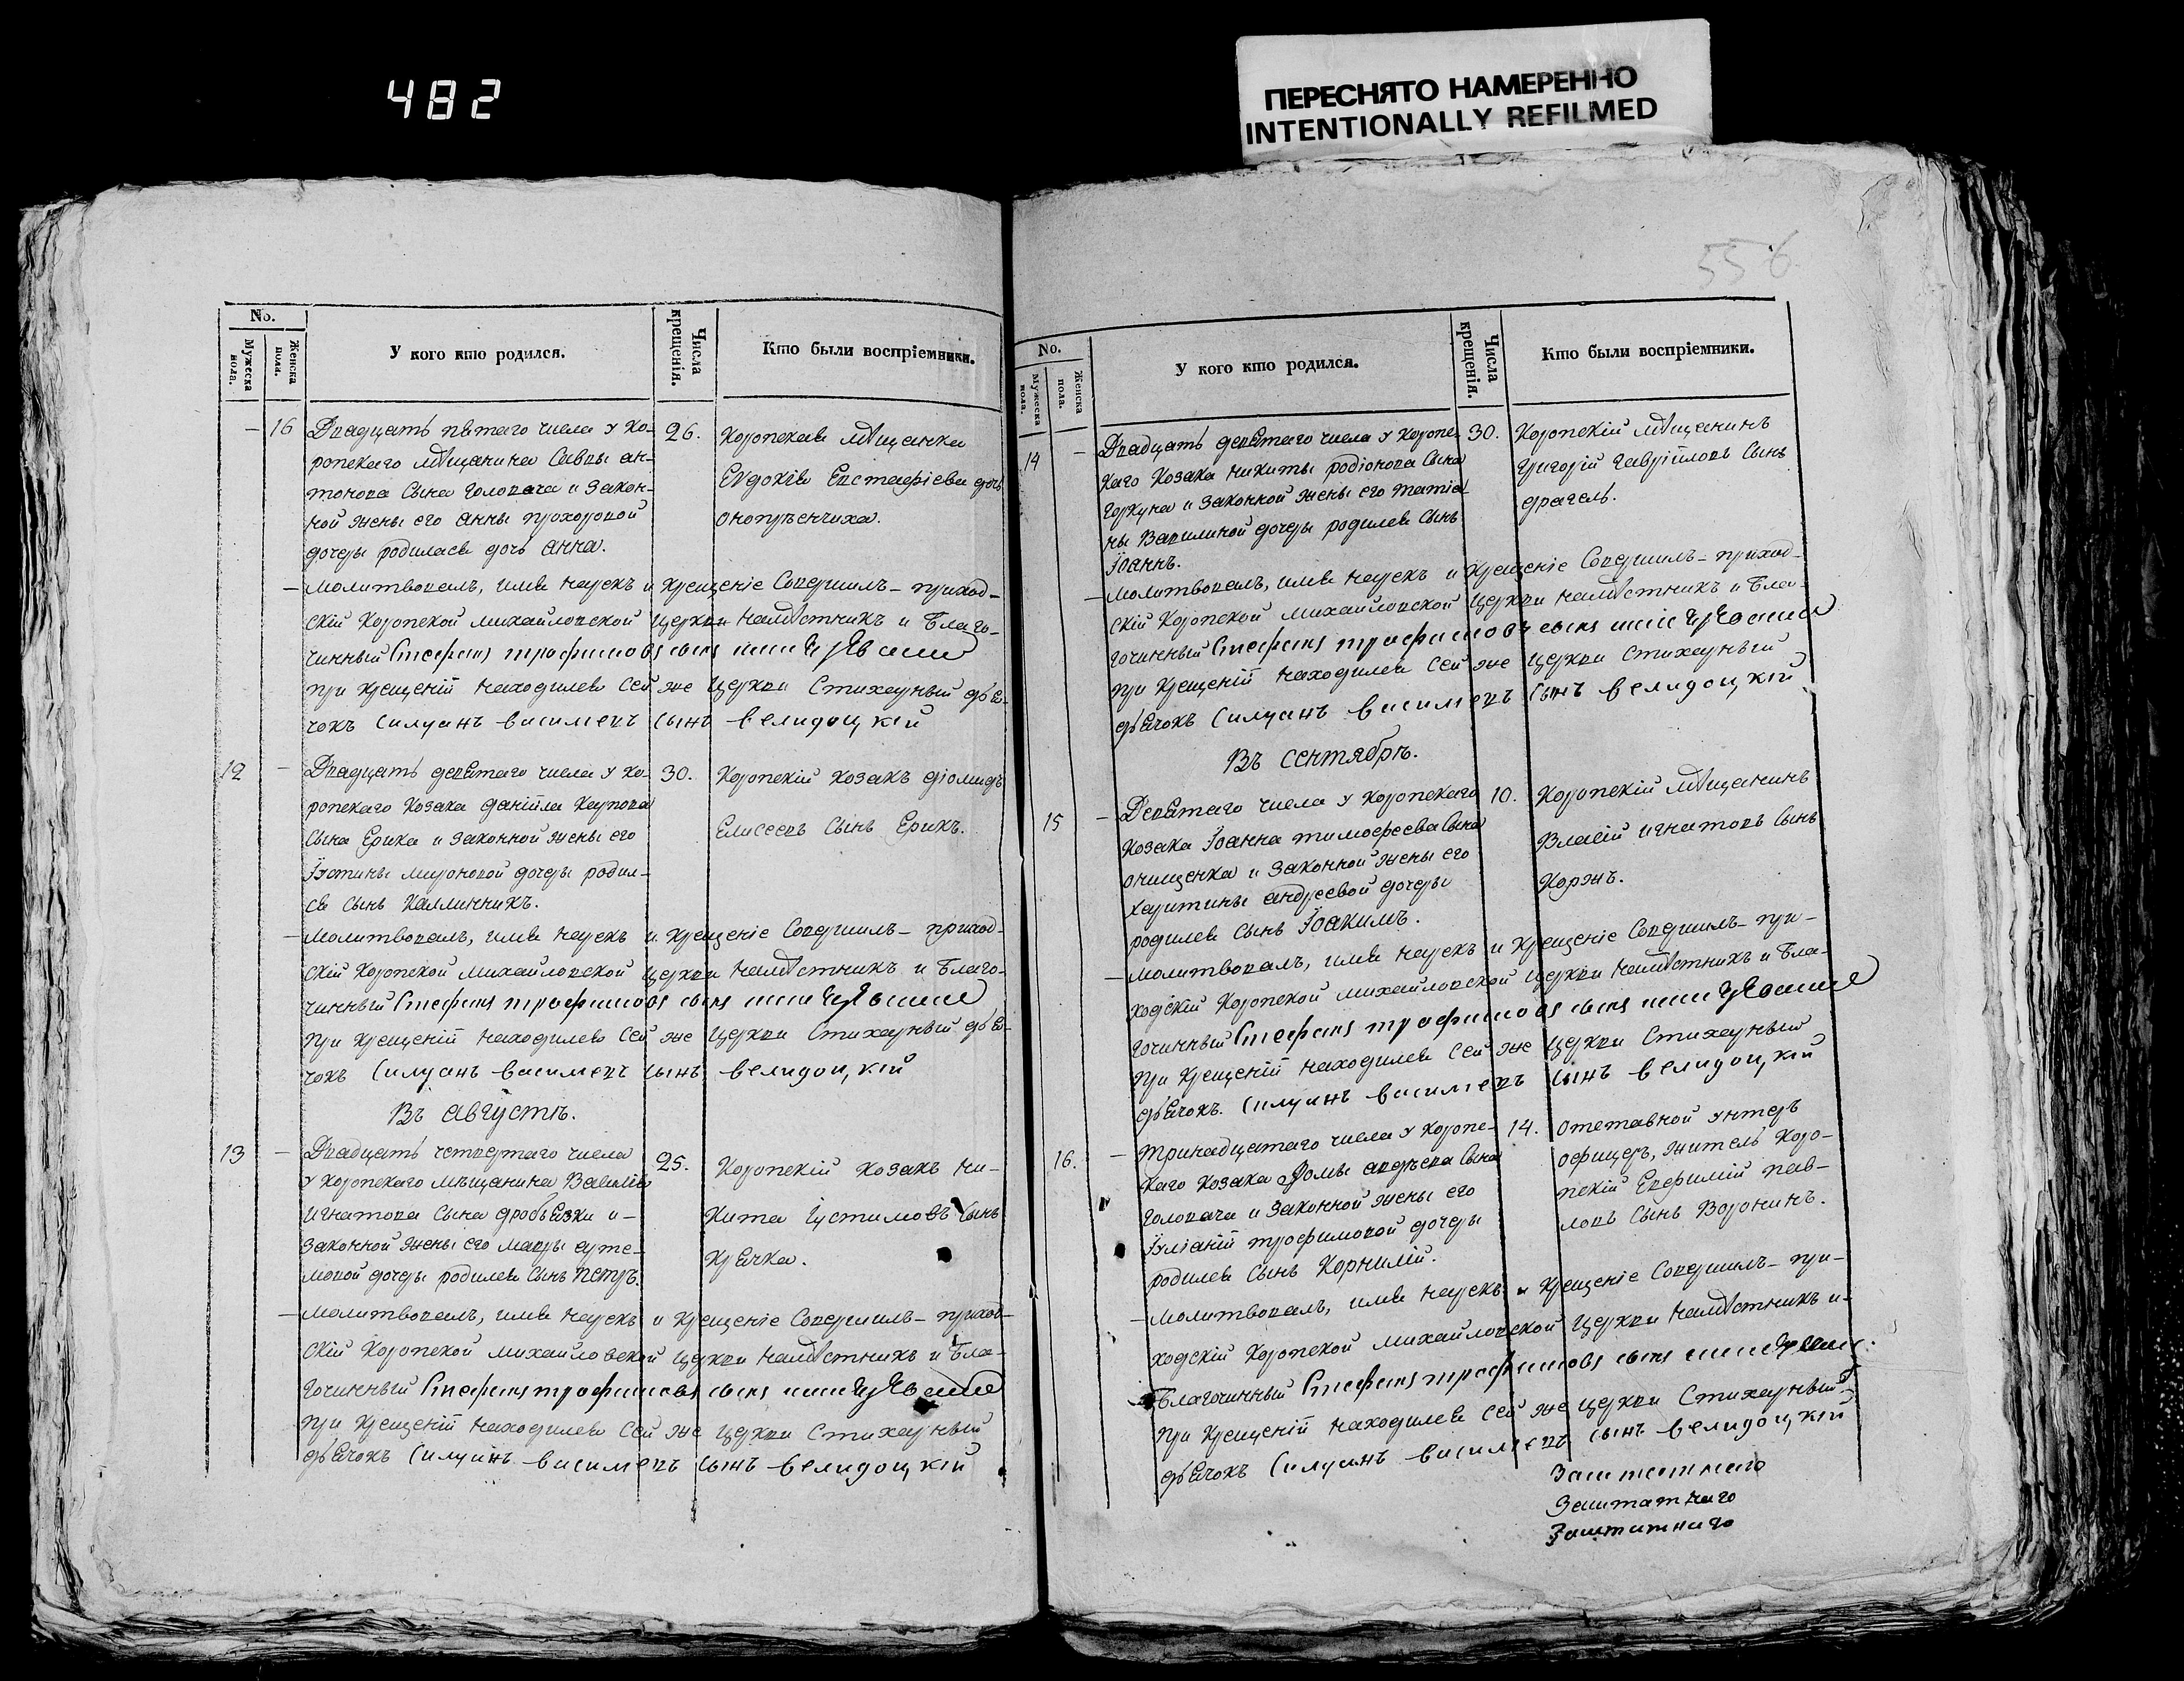 482
ПЕРЕСНЯТО НАМЕРЕННО
INTENTIONALLY REFILMED
No.
Мужеска пола.
Женска пола.
У кого кто родился.
Числа крещенія.
Кто были воспріемники.
16 Двадцать пятаго числа у Ко-
ропскаго мѣщанина Саввы ан-
тонова Сына Головача и Закон-
ной жены его анны прохоровой
дочеры родилася дочь анна.
26.
Коропская мѣщанка
Евдокія Евстафіева дочь
Молитвовалъ, имя нарекъ и Крещеніе Совершилъ – приход-
скій Коропской михайловской Церкви намѣстникъ и Благо-
чинный Стефанъ трофимовъ сынъ
при Крещеніи находился Сей же Церкви Стихарный дья-
чокъ Силуанъ васильевъ Сынъ
12
Двадцать девятаго числа у Ко-
ропскаго Козака даніила Карпова
Сына Ерика и Законной жены его
Їустины мироновой дочеры родил-
ся Сынъ Каллинникъ.
30.
Коропскій Козакъ діомидъ
Елисеевъ Сынъ Ерикъ.
Молитвовалъ, имя нарекъ и Крещеніе Совершилъ – приход-
скій Коропской михайловской Церкви намѣстникъ и Благо-
чинный Стефанъ трофимовъ сынъ
при Крещеніи находился Сей же Церкви Стихарный дья-
чокъ Силуанъ васильевъ Сынъ
Въ августѣ.
13
Двадцать четвертаго числа
у Коропскаго мѣщанина Василія
Игнатова Сына дробязки и
Законной жены его мавры арте-
мовой дочеры родился Сынъ Петръ.
25.
Коропскій Козакъ Ни-
кита Їустимовъ Сынъ
Крячка.
Молитвовалъ, имя нарекъ и Крещеніе Совершилъ – приход-
скій Коропской михайловской Церкви намѣстникъ и Бла-
гочинный Стефанъ трофимовъ сынъ
при Крещеніи находился Сей же Церкви Стихарный
дьячокъ Силуанъ васильевъ Сынъ
556
No.
Мужеска пола.
Женска пола.
У кого кто родился.
Числа крещенія.
Кто были воспріемники.
14
Двадцать девятаго числа у Коропс-
каго Козака никиты родіонова Сына
Горкуна и Законной жены его татіа-
ны Вавилиной дочеры родился Сынъ
Їоаннъ.
30.
Коропскій мѣщанинъ
Григорій гавріиловъ Сынъ
драгель.
Молитвовалъ, имя нарекъ и Крещеніе Совершилъ – приход-
скій Коропской михайловской Церкви намѣстникъ и Бла-
гочинный Стефанъ трофимовъ сынъ
при Крещеніи находился Сей же Церкви Стихарный
дьячокъ Силуанъ васильевъ Сынъ
Въ сентябрѣ.
15
Девятаго числа у Коропскаго
Козака Їоанна тимофеева Сына
онищенка и Законной жены его
харитины андреевой дочеры
родился Сынъ Їоакимъ.
10.
Коропскій мѣщанинъ
Власій игнатовъ Сынъ
Коржъ.
Молитвовалъ, имя нарекъ и Крещеніе Совершилъ – при-
ходскій Коропской михайловской Церкви намѣстникъ и Бла-
гочинный Стефанъ трофимовъ сынъ
при Крещеніи находился Сей же Церкви Стихарный
дьячокъ. Силуанъ васильевъ Сынъ
16.
Тринадцатаго числа у Коропс-
каго Козака Фомы авдѣева Сына
Головача и Законной жены его
Їуліаніи трофимовой дочеры
родился Сынъ Корнилій.
14.
Отставной унтеръ
офицеръ, житель Коро-
пскій Евфимій пав-
ловъ Сынъ Воронинъ.
Молитвовалъ, имя нарекъ и Крещеніе Совершилъ – при-
ходскій Коропской михайловской Церкви намѣстникъ и
Благочинный Стефанъ трофимовъ сынъ
при Крещеніи находился Сей же Церкви Стихарный
дьячокъ Силуанъ васильевъ Сынъ
Заштатнаго
Заштатнаго
Заштатнаго